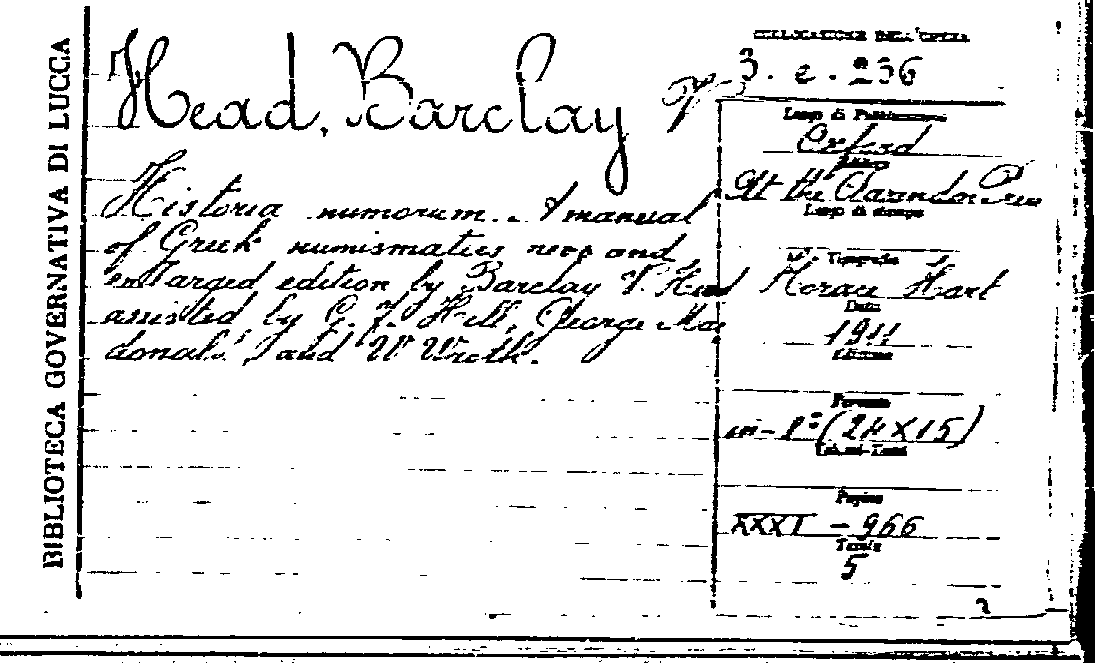 BIBLIOTECA GOVERNATIVA DI LUCCA
Head, Barclay V.
Historia numorum. A manual
of Greek numismatics new and
enlarged edition by Barclay V. Head
assisted by G. F. Hill, George Mac
donald, and W Wroth.
COLLOCAZIONE DELL'OPERA
3. e. 236
Luogo di Pubblicazione
Oxford
Editore
At the Clarendon Press
Luogo di stampa
Tipografia
Horace Hart
Data
1911
Edizione
Formato
in-8° (24X15)
Volumi-Tomi
Pagine
XXXI - 966
Tavole
5